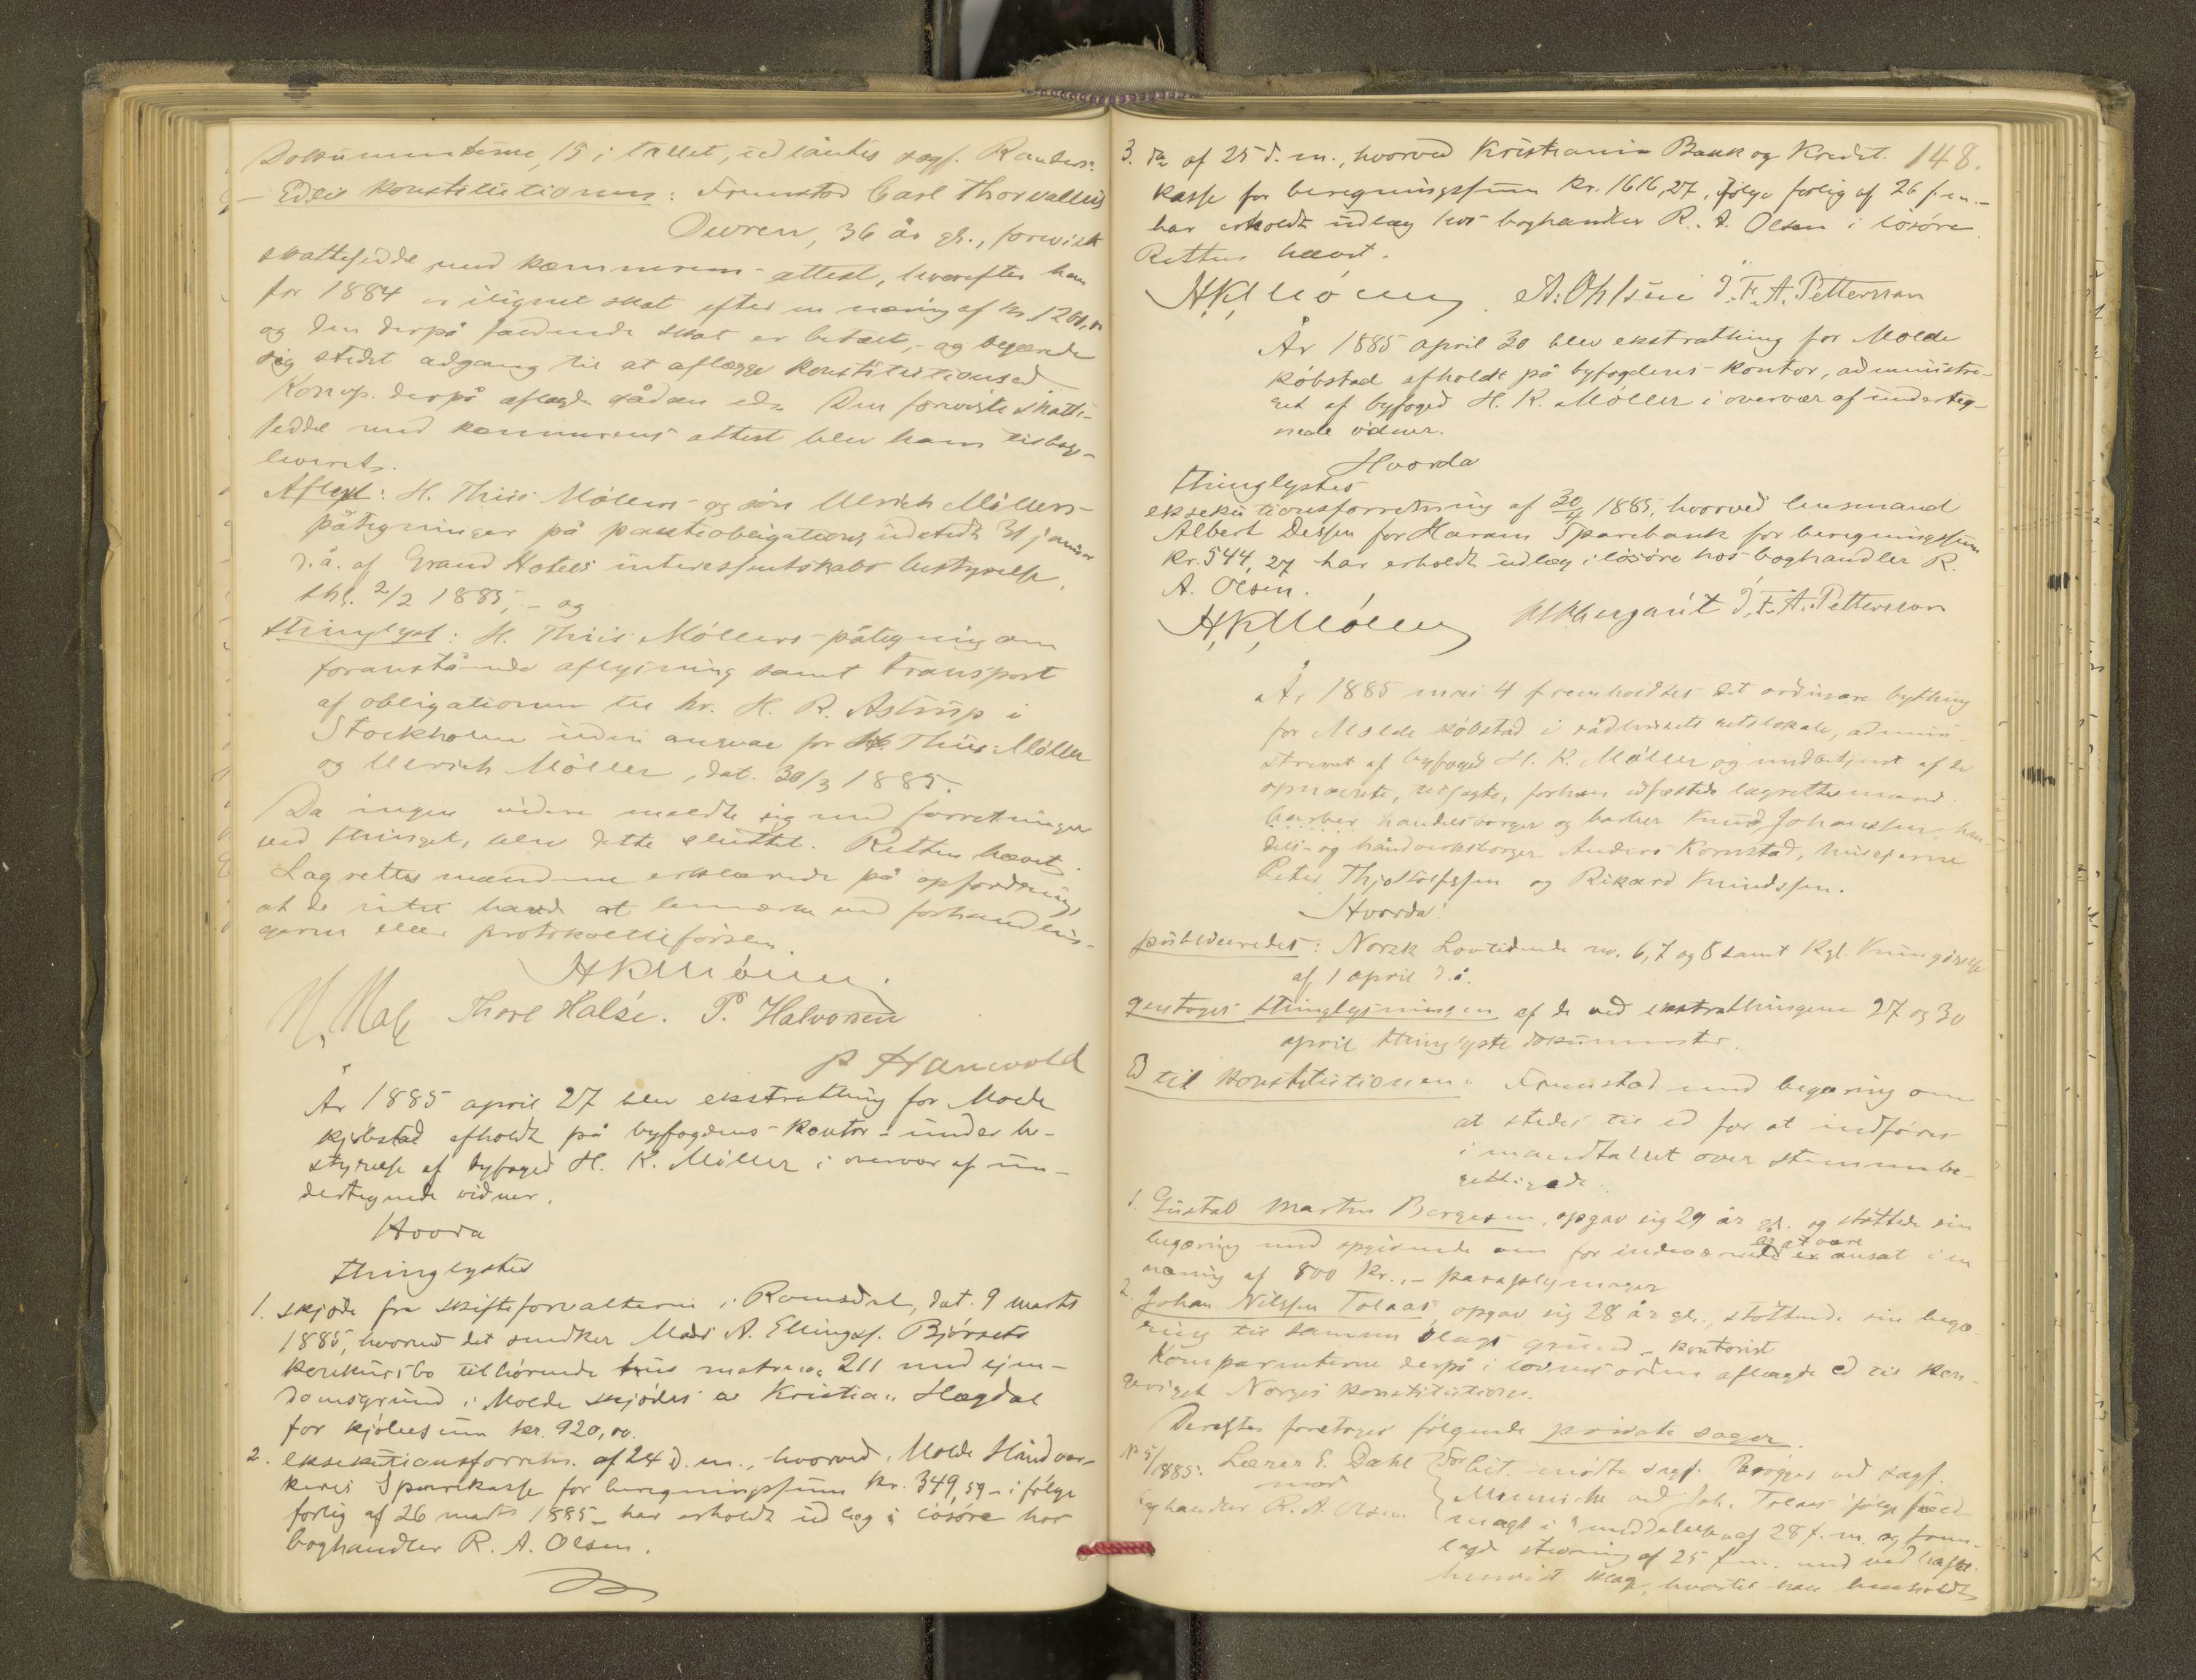 Dokumenterne, 15 i tallet, udlåntes sagf.
Ed til konstitutionen: Fremstod Carl Thorvald
Owren, 36 år gl., foreviste
skatteseddel med kæmnerens attest, hvorefter han
for 1884 er ilignet skat efter en næring af kr 1200,00
og den derpå faldende skat er betalt, - og begærede
sig stedet adgang til at aflægge konstitutionsed
Komp. derpå aflagde sådan ed. Den foreviste skatte-
seddel med kæmnerens attest blev ham tilbage-
leveret.
Aflyst: H. Thiis Møllers og søn Ulrich Møllers
påtegninger på panteobligation udstedt 31 januar
d. å. af Grand Hotels interessentskabs bestyrelse,
thl. 2/2 1885, - og
thinglyst: H. Thiis Møllers påtegning om
foranstående aflysning samt transport
af obligationen til hr. H. R. Astrup i
Stockholm uden ansvar for Thiis Møller
og Ulrich Möller, dat. 30/3 1885.
Da ingen videre meldte sig med forretninger
ved thinget, blev dette sluttet. Retten hævet.
Lagrettesmændene erklærede på opfordring,
at de intet havde at bemærke ved forhandlin-
gerne eller protokolletilførslen.
HKMöller.
Thore Halse. P. Halvorsen
P Hanvold
År 1885 april 27 blev ekstrathing for Molde
kjøbstad afholdt på byfogdens kontor under be-
styrelse af byfoged H. K. Möller i overvær af un-
dertegnede vidner.
Hvorda
thinglystes
1. skjøde fra skifteforvalteren i Romsdal, dat. 9 marts
1885, hvorved det snedker Mads A. Ellingss. Bjørsets
konkursbo tilhørende hus matr. no. 211 med ejen-
domsgrund i Molde skjødes til Kristian Hægdal
for kjøbesum kr. 920,00.
2. eksekutionsforretn. af 24 d. m., hvorved Molde Håndvær-
keres Sparekasse for beregningssum kr. 349,59 - i følge
forlig af 26 marts 1885 - har erholdt udlæg i løsøre hos
boghandler R. A. Olsen.
148.
3. do af 25 d. m., hvorved Kristiania Bank og Kredit-
kasse for beregningssum kr. 1616,27, ifølge forlig af 26 f. m. -
har erholdt udlæg hos boghandler R. A. Olsen i løsøre
Retten hævet.
HKMöller A. Ohlsen J. F. A. Petterson
År 1885 april 30 blev ekstrathing for Molde
købstad afholdt på byfogdens kontor, administre-
ret af byfoged H. K. Möller i overvær af underteg-
nede vidner.
Hvorda
thinglystes
eksekutionsforretning af 30/4 1885, hvorved lensmand
Albert Dessen for Harams Sparebank for beregningssum
kr. 544,27 har erholdt udlæg i løsøre hos boghandler R.
A. Olsen.
HKMöller J. F. A. Petterson
År 1885 mai 4 fremholdtes det ordinære bything
for Molde købstad i rådhusets retslokale, admini-
streret af byfoged H. K. Möller og medbetjent af de
opnævnte, tilsagte, forhen edfæstede lagrettesmænd
barber handelsborger og barber Knud Johanssen, han-
dels- og håndverksborger Anders Kornstad, huseierne
Peter Thjostolfssen og Rikard Knudssen.
Hvorda:
publiceredes: Norsk Lovtidende no. 6, 7 og 8 samt Kgl. Kungjørelse
af 1 april d. å.
gentoges thinglysningen af de ved ekstrathingene 27 og 30
april thinglyste dokumenter.
Ed til konstitutionen: Fremstod med begæring om
at stedes til ed for at indføres
i mandtallet over stemmebe-
rettigede.
1. Gustav Martin Børgesen, opgav sig 29 år gl. og støttede sin
begæring med opgivende om for indeværende år at være ansat i en
næring af 800 kr., - paraplymager
2. Johan Nilssen Tolaas, opgav sig 28 år gl., støttende sin begæ-
ring til samme slags grund - kontorist
Komparenterne derpå i lovens orden aflagde ed til kon-
geriget Norges konstitution.
Derefter foretoges følgende private sager.
No 5/1885. Lærer E. Dahl
mod
boghandler R. A. Olsen
For cit. mødte sagf. ved sagf.
Minnicke ved Joh. Tolaas ifølge fuld-
magt i meddelelsen af 28 f. m. og frem-
lagde stevning af 25 f. m. med ved hæftet
henvist klag, hvortil han henholdt